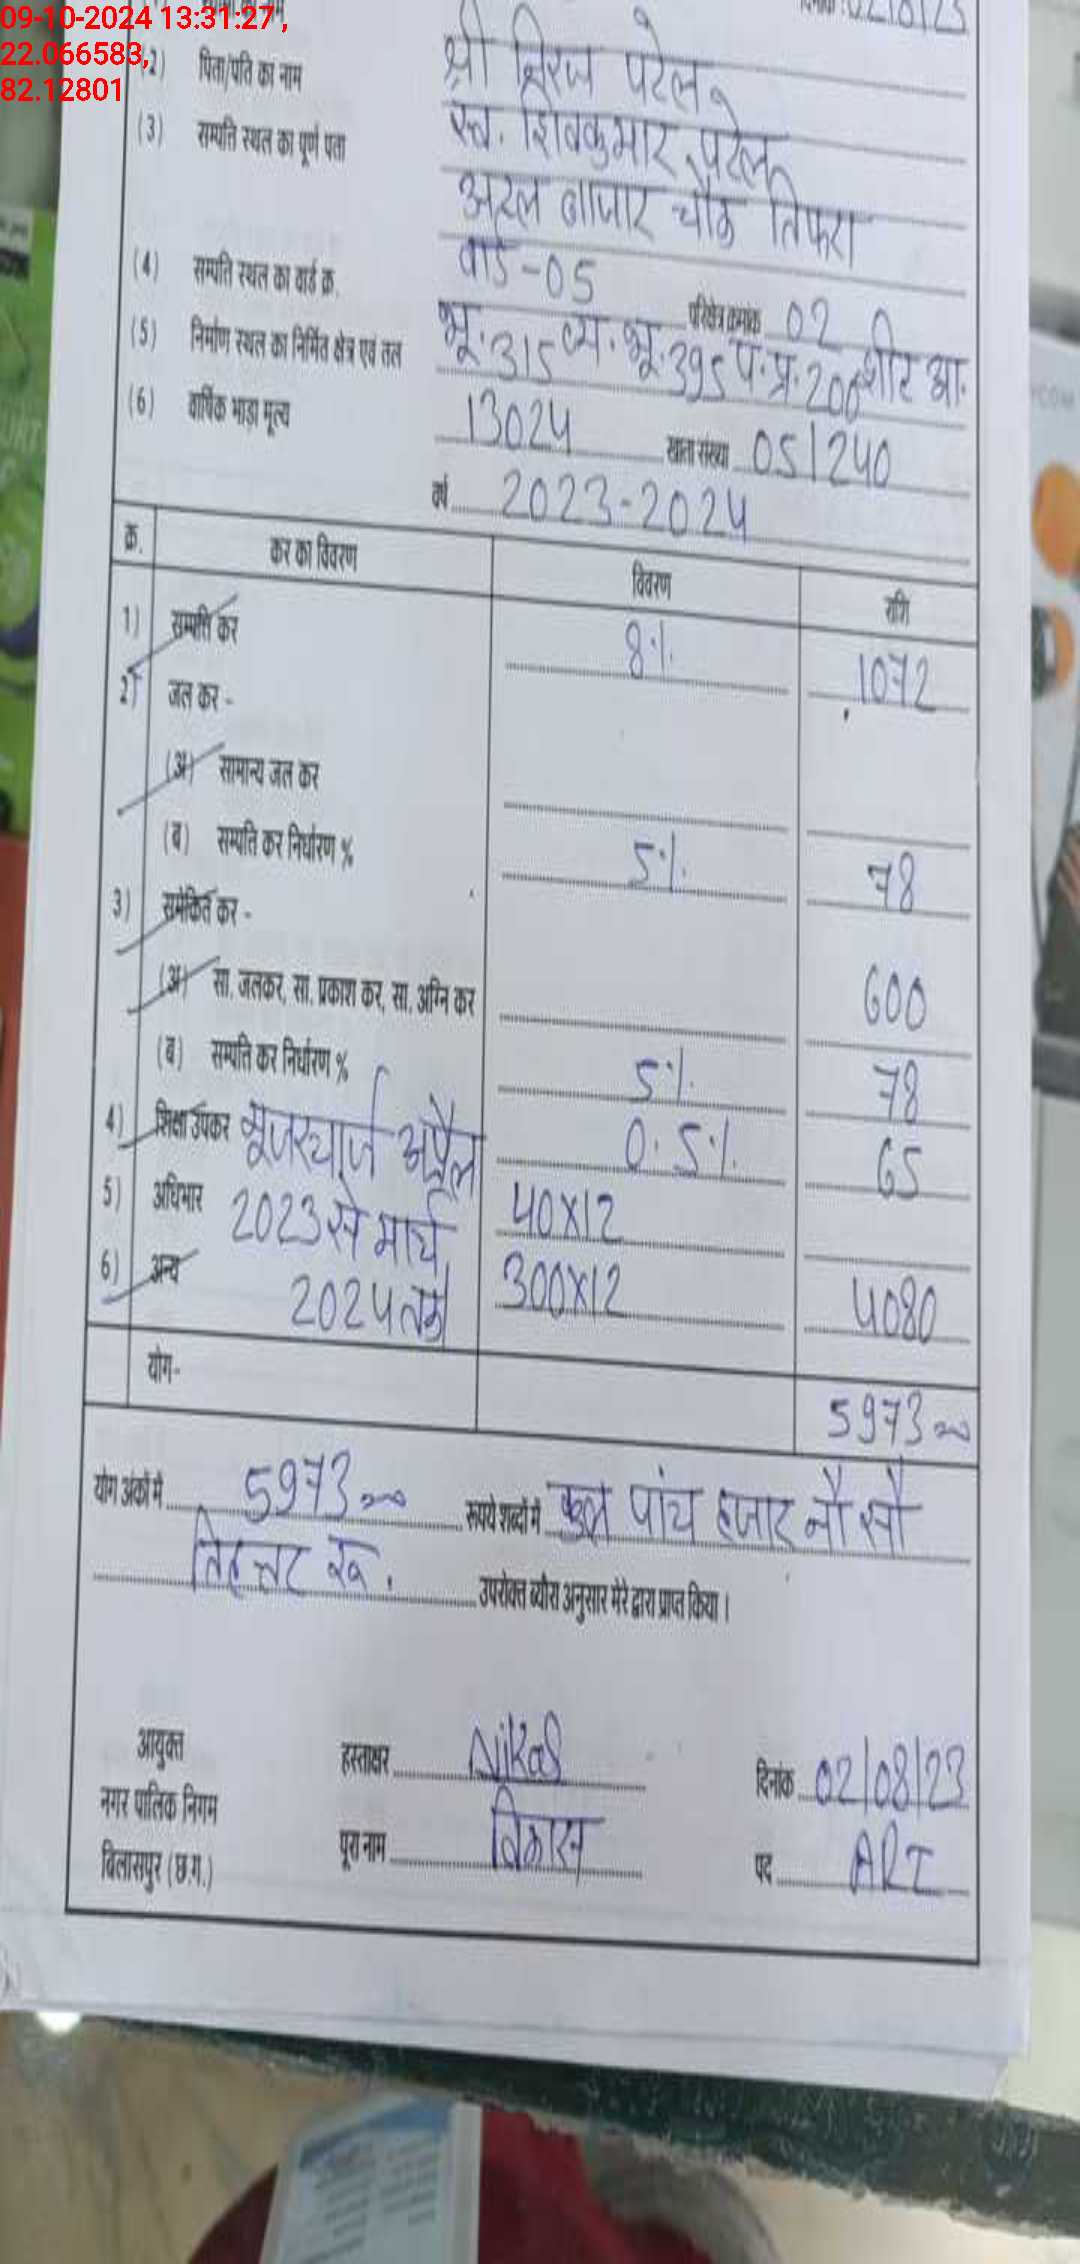 09-10-2024 13:31:27,
22.066583,
82.12801
श्री निरज पटेल
(2) पिता/पति का नाम स्व. शिवकुमार पटेल
(3) सम्पति स्थल का पूर्ण पता अटल बाजार चौक तिफरा
वार्ड-05
(4) सम्पति स्थल का वार्ड क्र. परिक्षेत्र क्रमांक 02
(5) निर्माण स्थल का निर्मित क्षेत्र एवं तल भू. 315 व्य. भू. 395 प. प्र. 200 शीट आ.
(6) वार्षिक भाड़ा मूल्य 13024 खाता संख्या 051240
वर्ष 2023-2024
क्र. कर का विवरण विवरण राशि
1) सम्पत्ति कर 8% 1072
2) जल कर -
(अ) सामान्य जल कर
(ब) सम्पति कर निर्धारण % 5% 78
3) समेकित कर -
(अ) सा. जलकर, सा. प्रकाश कर, सा. अग्नि कर 600
(ब) सम्पति कर निर्धारण % 5% 78
4) शिक्षा उपकर 0.5% 65
यूजरचार्ज अप्रैल
5) अधिभार 2023 से मार्च 40x12
6) अन्य 2024 तक 300x12 4080
योग- 5973
योग अंकों में 5973 रूपये शब्दों में कुल पांच हजार नौ सौ
तिहत्तर रू. उपरोक्त ब्यौरा अनुसार मेरे द्वारा प्राप्त किया।
आयुक्त हस्ताक्षर दिनांक 02/08/23
नगर पालिक निगम पूरा नाम विकास पद ARI
बिलासपुर (छ.ग.)